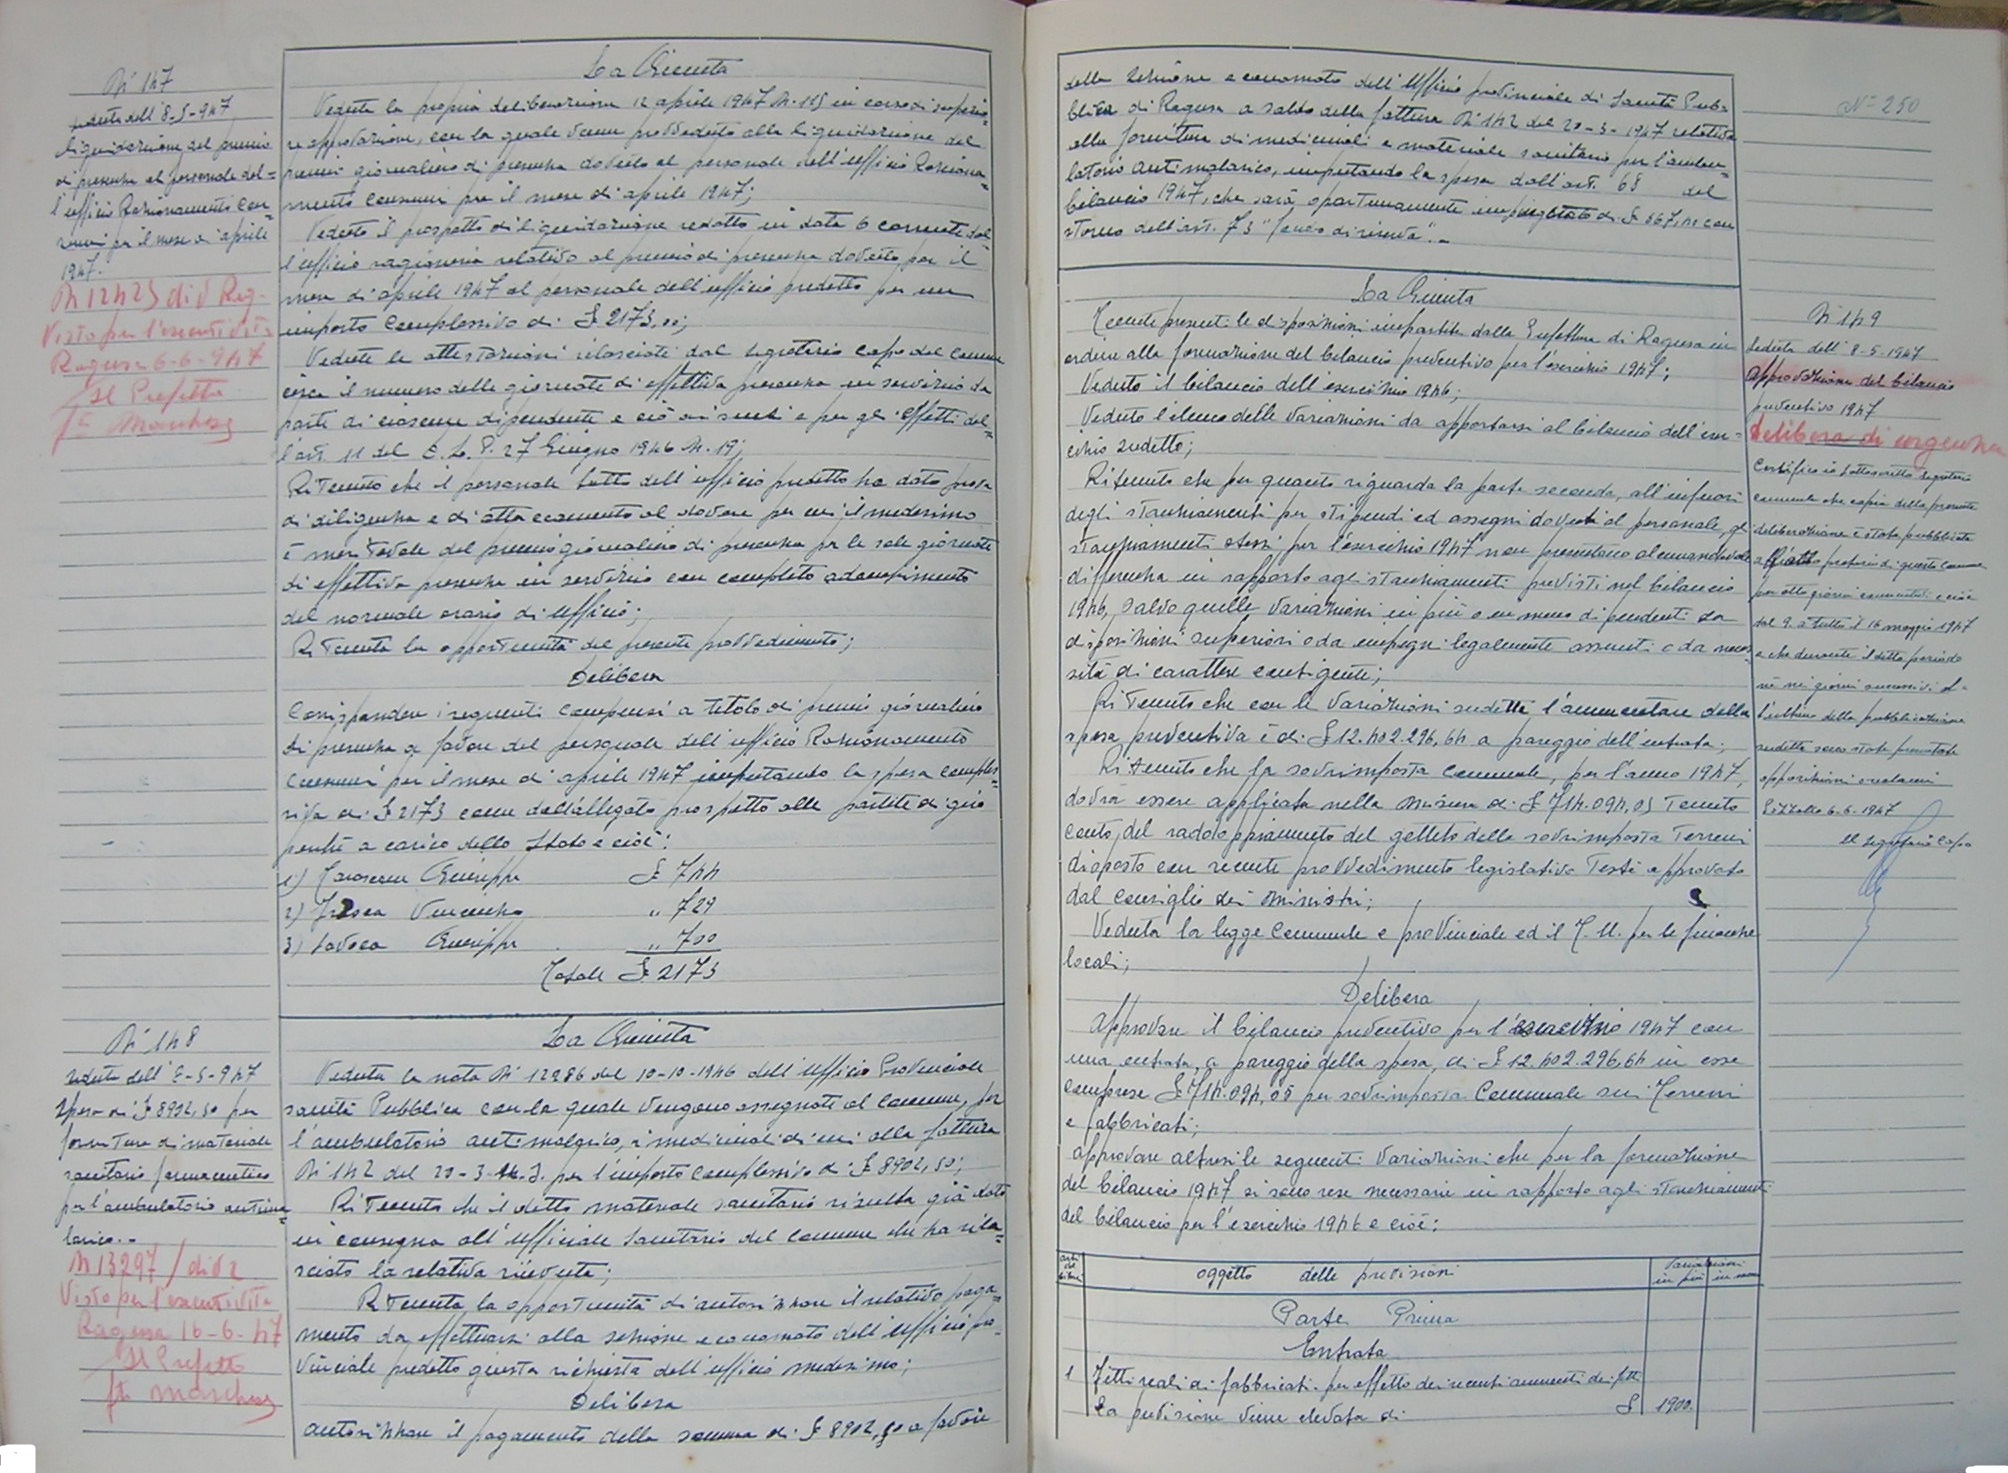 N° 147
seduta dell'8-5-947
liquidazione del premio
di presenza al personale del=
l'ufficio Razionamento Con=
sumi per il mese di aprile
1947.
N 12423 div Rag.
Visto per l'esecutività
Ragusa 6-6-947
Il Prefetto
La Giunta
Veduta la propria deliberazione 12 aprile 1947 N. 115 in corso di superio=
re approvazione, con la quale venne provveduto alla liquidazione del
premio giornaliero di presenza dovuto al personale dell'ufficio Raziona=
mento consumi per il mese di aprile 1947;
Veduto il prospetto di liquidazione redatto in data 6 corrente dal=
l'ufficio ragioneria relativo al premio di presenza dovuto per il
mese di aprile 1947 al personale dell'ufficio predetto per un
importo complessivo di £ 2173,00;
Vedute le attestazioni rilasciate dal segretario capo del comune
circa il numero delle giornate di effettiva presenza in servizio da
parte di ciascun dipendente e ciò ai sensi e per gli effetti del=
l'art. 11 del D. L. P. 27 Giugno 1946 N. 19;
Ritenuto che il personale tutto dell'ufficio predetto ha dato prova
di diligenza e di attaccamento al dovere per cui il medesimo
è meritevole del premio giornaliero di presenza per le sole giornate
di effettiva presenza in servizio con completo adempimento
del normale orario di ufficio;
Ritenuta la opportunità del presente provvedimento;
Delibera
Corrispondere i seguenti compensi a titolo di premio giornaliero
di presenza a favore del personale dell'ufficio Razionamento
Consumi per il mese di aprile 1947 imputando la spesa comples=
siva di £ 2173 come dall'allegato prospetto alle partite di giro
perché a carico dello Stato e cioè:
1) Giuseppe £ 744
2) Vincenzo " 729
3) Giuseppe " 700
Totale £ 2173
N° 148
seduta dell'8-5-947
Spesa di £ 8902,50 per
fornitura di materiale
sanitario farmaceutico
per l'ambulatorio antima=
larico..
N 13297 / div 2
Visto per l'esecutività
Ragusa 16-6-47
Il Prefetto
La Giunta
Veduta la nota N° 12986 del 10-10-1946 dell'Ufficio Provinciale
sanità Pubblica con la quale vengono assegnati al Comune, per
l'ambulatorio antimalarico, i medicinali di cui alla fattura
N° 142 del 20-3-u.s. per l'importo complessivo di £ 8902,50;
Ritenuto che il detto materiale sanitario risulta già dato
in consegna all'Ufficiale Sanitario del Comune che ha rila=
sciato la relativa ricevuta;
Ritenuta la opportunità di autorizzare il relativo paga=
mento da effettuarsi alla sezione economato dell'Ufficio pro=
vinciale predetto giusta richiesta dell'ufficio medesimo;
Delibera
autorizzare il pagamento della somma di £ 8902,50 a favore
della sezione economato dell'Ufficio provinciale di Sanità Pub=
blica di Ragusa a saldo della fattura N° 142 del 20-3-1947 relativa
alla fornitura di medicinali e materiale sanitario per l'ambu=
latorio antimalarico, imputando la spesa dall'art. 68 del
bilancio 1947, che sarà opportunamente impinguato di £ 567,00 con
storno dell'art. 73 "fondo di riserva"..
N° 250
La Giunta
Tenute presenti le disposizioni impartite dalla Prefettura di Ragusa in
ordine alla formazione del bilancio preventivo per l'esercizio 1947;
Veduto il bilancio dell'esercizio 1946;
Veduto l'elenco delle variazioni da apportarsi al bilancio dell'eser=
cizio sudetto;
Ritenuto che per quanto riguarda la parte seconda, all'infuori
degli stanziamenti per stipendi ed assegni dovuti al personale, gli
stanziamenti stessi per l'esercizio 1947 non presentano alcuna notevole
differenza in rapporto agli stanziamenti previsti nel bilancio
1946, salvo quelle variazioni in più o in meno dipendenti da
disposizioni superiori o da impegni legalmente assunti o da neces=
sità di carattere contigente;
Ritenuto che con le variazioni sudette l'ammontare della
spesa preventiva è di £ 12.402.296,64 a pareggio dell'entrata;
Ritenuto che la sovrimposta comunale, per l'anno 1947,
dovrà essere applicata nella misura di £ 714.094,05 tenuto
conto, del radoppiamento del gettito della sovrimposta Terreni
disposto con recente provvedimento legislativo testè approvato
dal consiglio dei ministri;
Veduta la legge Comunale e provinciale ed il T.U. per le finanze
locali;
Delibera
Approvare il bilancio preventivo per l'esercizio 1947 con
una entrata, a pareggio della spesa, di £ 12.402.296,64 in esse
comprese £ 714.094,05 per sovrimposta Comunale sui Terreni
e fabbricati;
approvare altresì le seguenti variazioni che per la formazione
del bilancio 1947 si sono rese necessarie in rapporto agli stanziamenti
del bilancio per l'esercizio 1946 e cioè:
N° 149
Seduta dell'8-5-1947
Approvazione del bilancio
preventivo 1947
Delibera di urgenza
Certifico io sottoscritto segretario
comunale che copia della presente
deliberazione è stata pubblicata
all'albo pretorio di questo comune
per otto giorni consecutivi e cioè
dal 9 a tutto il 16 maggio 1947
e che durante il detto periodo
nè nei giorni successivi al=
l'ultimo della pubblicazione
sudetta sono state presentate
opposizioni o reclami
6-6-1947
Il segretario Capo
oggetto delle previsioni
Variazioni
in più in meno
Parte Prima
Entrata
1 Fitti reali di fabbricati per effetto dei recenti aumenti dei fitti
la previsione viene elevata di £ 1900.